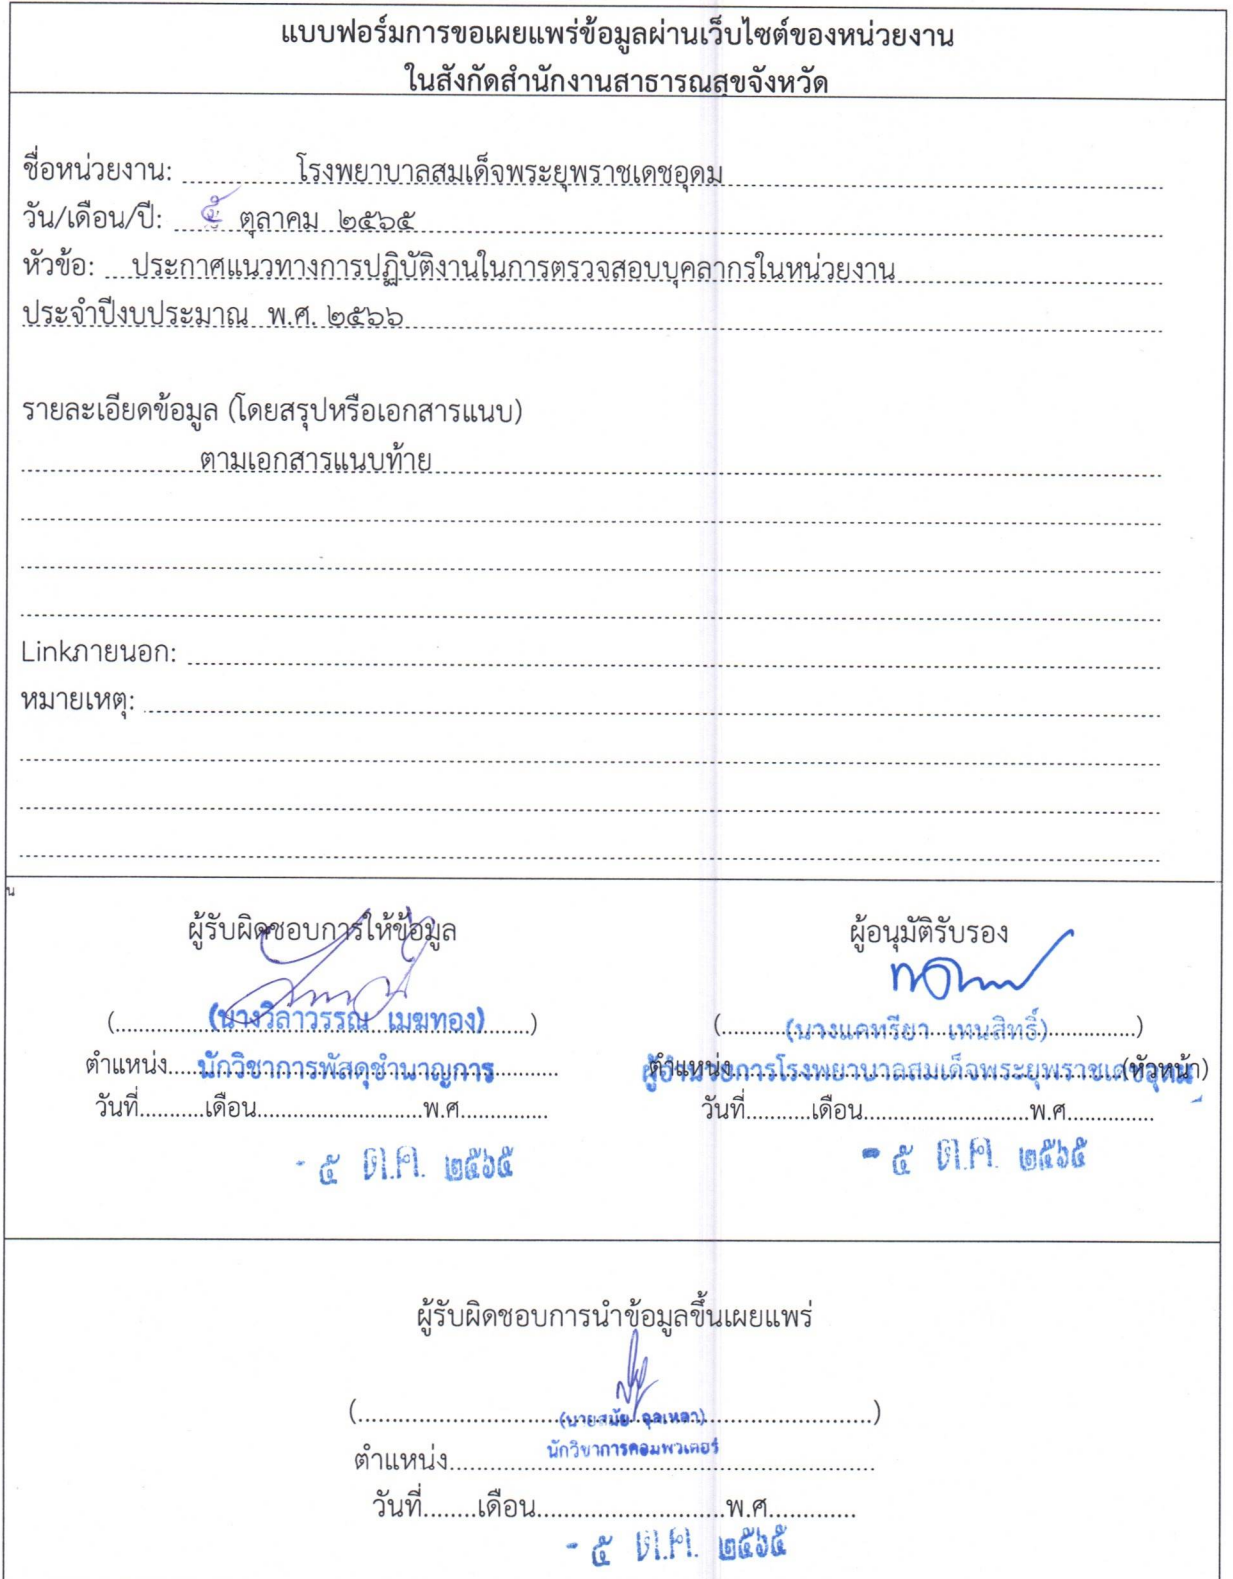 แบบฟอร์มการขอเผยแพร่ข้อมูลผ่านเว็บไซต์ของหน่วยงาน
ในสังกัดสำนักงานสาธารณสุขจังหวัด
ชื่อหน่วยงาน: โรงพยาบาลสมเด็จพระยุพราชเดชอุดม
วัน/เดือน/ปี: ๕ ตุลาคม ๒๕๖๕
หัวข้อ: ประกาศแนวทางการปฏิบัติงานในการตรวจสอบบุคลากรในหน่วยงาน
ประจำปีงบประมาณ พ.ศ. ๒๕๖๖
รายละเอียดข้อมูล (โดยสรุปหรือเอกสารแนบ)
ตามเอกสารแนบท้าย
Linkภายนอก:
หมายเหตุ:
น
ผู้รับผิดชอบการให้ข้อมูล ผู้อนุมัติรับรอง
(นางวิลาวรรณ เมฆทอง) (นางแคทรียา เทนสิทธิ์)
ตำแหน่ง นักวิชาการพัสดุชำนาญการ ตำแหน่ง ผู้อำนวยการโรงพยาบาลสมเด็จพระยุพราชเดชอุดม (หัวหน้า)
วันที่...........เดือน............................พ.ศ............... วันที่...........เดือน............................พ.ศ...............
- ๕ ต.ค. ๒๕๖๕ - ๕ ต.ค. ๒๕๖๕
ผู้รับผิดชอบการนำข้อมูลขึ้นเผยแพร่
(นายสมัย จุลเหลา)
ตำแหน่ง นักวิชาการคอมพิวเตอร์
วันที่........เดือน............................พ.ศ.............
- ๕ ต.ค. ๒๕๖๕